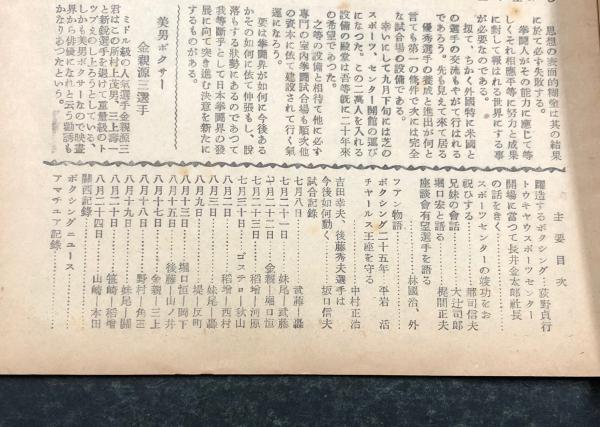 思想の表面的糊塗は其の結果
に於て必ず失敗する。
拳闘人がその能力に應じて等
しくそれ相應平等に努力と成果
に對して報はれる世界にする事
が必要なのである。
扨て、ちかく外國特に米國と
の選手の交流もやがて行はれる
であろう。先も見えて來て居る
優秀選手の養成と進出が何と
言ても第一の條件で次には完全
な試合場の設備である。
幸いにして九月下旬には芝の
スポーツ、センター開館の運び
になつた。この二萬人を入れる
設備の殿堂は吾等既に二十年來
の希望であつた。
之等の設備と相待て他に必ず
専門の室内拳闘試合場も順次他
の資本に依て建設されて行く氣
運になろう。
要は拳闘界が如何に今後ある
かその如何に依て伸張もし、脱
落もする狀勢にあるのであつて
我等斷乎として日本拳闘界の發
展に向て突き進む決意を新たに
するものがある。
美男ボクサー
金親源三選手
ミドル級の人氣選手金親源三
君はこの所村上茂男、三上壽
と新鋭選手を退けて重量級のト
ツプえのし上ろうとしている、
しかも美男ボクサーなので映畫
界から俳優になれと云う勧誘も
かなりあつたという。
主要目次
躍進するボクシング…荻野貞行
トウキヤウスポーツセンター
開場に當つて長井金太郎社長
の話をきく
スポーツセンターの竣功をお
祝ひする………郡司信夫
兄妹の會話……大辻司郎
堀口宏と語る……梶間正夫
座談會有望選手を語る
林國治、外
フアン物語……中村正治
ボクシング二十五年 平岩 活
チヤールス王座を守る
吉田幸夫、後藤秀夫選手は
今後如何動く……坂口信夫
試合記錄
七月八日………武藤—轟
七月二十一日……妹尾—武藤
七月二十二日…金親—堀口恒
七月二十三日……稻增—河原
七月三十日……ゴステロー—秋山
八月二日………稻增—西村
八月三日………妹尾—轟
八月九日………堤—反町
八月十三日……堀口恒—岡下
八月十五日……後藤—山ノ井
八月十七日……金親—三上
八月十八日……野村—角正
八月十九日……妹尾—關
八月二十一日……笹崎—稻增
八月二十四日……山崎—本田
關西記錄
ボクシングニユース
アマチユア記錄